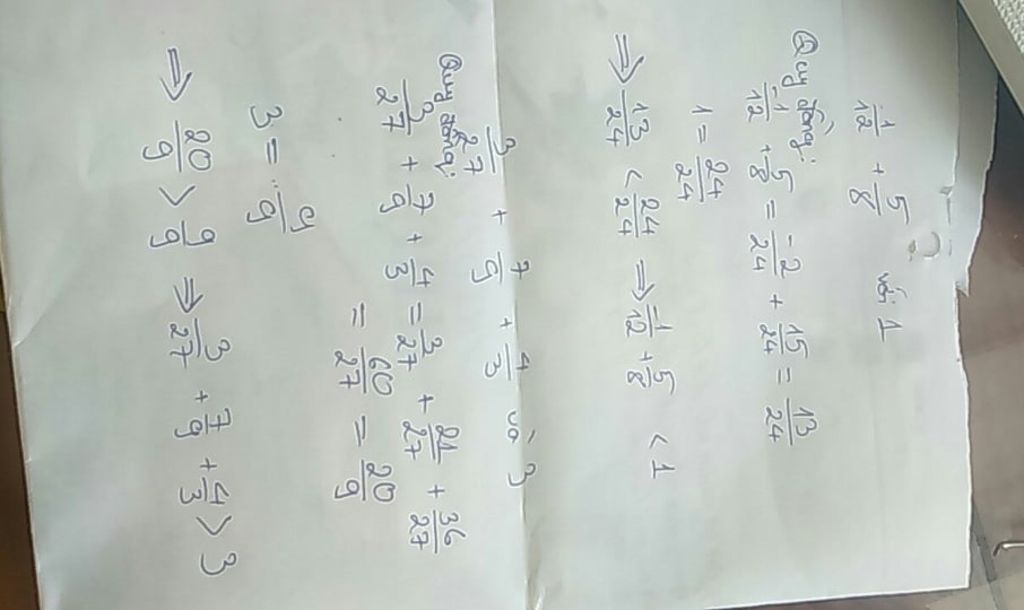 -1/12 + 5/8 với 1
Quy đồng:
-1/12 + 5/8 = -2/24 + 15/24 = 13/24
1 = 24/24
⇒ 13/24 < 24/24 ⇒ -1/12 + 5/8 < 1
3/27 + 7/9 + 4/3 và 3
Quy đồng:
3/27 + 7/9 + 4/3 = 3/27 + 21/27 + 36/27
= 60/27 = 20/9
3 = 9/9
⇒ 20/9 > 9/9 ⇒ 3/27 + 7/9 + 4/3 > 3